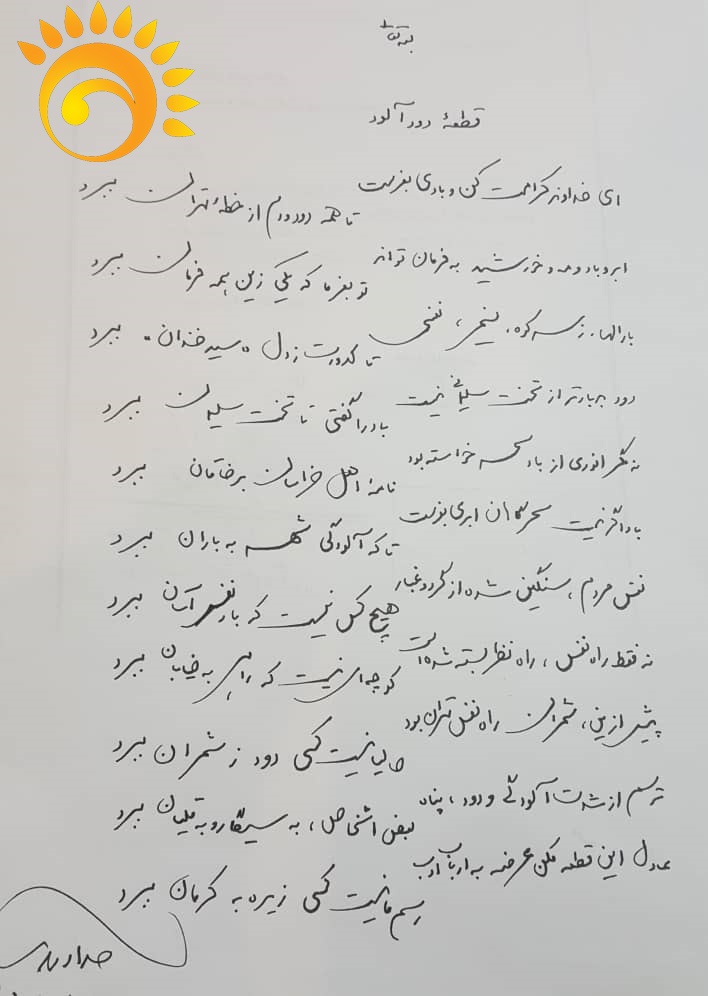 بسمه تعالی
قطعهٔ دودآلود
ای خداوند کرامت کن و بادی بفرست
تا همه دود و دم از خطهٔ تهران ببرد
ابر و باد و مه و خورشید به فرمان تواند
تو بفرما که یکی زین همه فرمان ببرد
بارالها، ز سر کوه، نسیمی، نفسی
تا کدورت ز دل «سیدخندان» ببرد
دود پربارتر از تخت سلیمانی نیست
باد را گفتی تا تخت سلیمان ببرد
نه مگر انوری از باد سحر خواسته بود
نامهٔ اهل خراسان بر خاقان ببرد
باد اگر نیست سحرگاهان ابری بفرست
تا که آلودگی شهر به باران ببرد
نفس مردم، سنگین شده از گرد و غبار
هیچ کس نیست که بار نفس آسان ببرد
نه فقط راه نفس، راه نظر بسته شده است
کوچه‌ای نیست که راهی به خیابان ببرد
پیش ازین، شمران راه نفس تهران بود
حالیا نیست کسی دود ز شمران ببرد
ترسم از شدت آلودگی و دود، پناه
بعض اشخاص، به سیگار و به قلیان ببرد
عادل این قطعه مکن عرضه به ارباب ادب
رسم ما نیست کسی زیره به کرمان ببرد